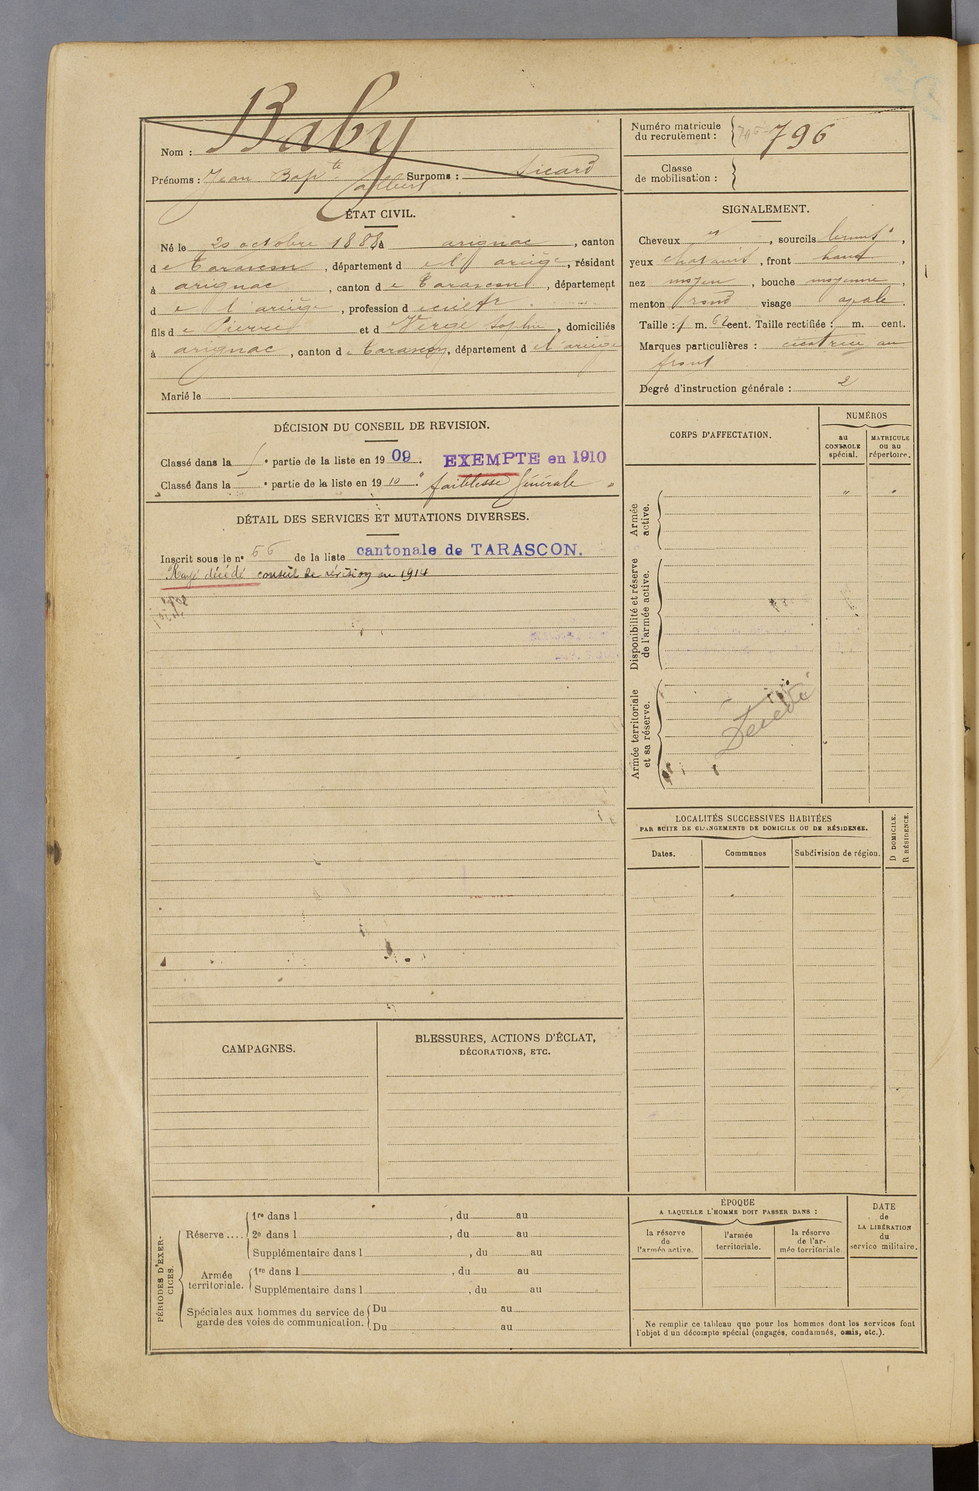 Nom : Baby
Prénoms : Jean Bapte Albert Surnoms : Sicard
Numéro matricule du recrutement : 796
Classe de mobilisation :
ÉTAT CIVIL.
Né le 20 octobre 1888 à arignac, canton
de Tarascon, département d el'ariège, résidant
à arignac, canton de Tarascon, département
d e l'ariège, profession d
fils de Pierre et d Sophie, domiciliés
à arignac, canton de Tarascon, département d el'ariège
Marié le
SIGNALEMENT.
Cheveux , sourcils bruns,
yeux chatains, front haut,
nez moyen, bouche moyenne,
menton rond visage ovale.
Taille : 1 m. 62 cent. Taille rectifiée : m. cent.
Marques particulières : cicatrice au
front
Degré d'instruction générale : 2
DÉCISION DU CONSEIL DE REVISION.
Classé dans la e partie de la liste en 1909. EXEMPTE en 1910
Classé dans la e partie de la liste en 1910. faiblesse générale
DÉTAIL DES SERVICES ET MUTATIONS DIVERSES.
Inscrit sous le no 56 de la liste cantonale de TARASCON.
Rayé décédé conseil de révision en 1914
CORPS D'AFFECTATION.
NUMÉROS
au CONTROLE spécial.
MATRICULE ou au répertoire.
Armée active.
Disponibilité et réserve de l'armée active.
Armée territoriale et sa réserve.
Décédé
LOCALITÉS SUCCESSIVES HABITÉES
PAR SUITE DE CHANGEMENTS DE DOMICILE OU DE RÉSIDENCE.
Dates.
Communes
Subdivision de région.
D DOMICILE.
R RÉSIDENCE.
CAMPAGNES.
BLESSURES, ACTIONS D'ÉCLAT,
DÉCORATIONS, ETC.
PÉRIODES D'EXERCICES.
Réserve....
1re dans l , du au
2e dans l , du au
Supplémentaire dans l , du au
Armée territoriale.
1re dans l , du au
Supplémentaire dans l , du au
Spéciales aux hommes du service de garde des voies de communication.
Du au
Du au
ÉPOQUE
A LAQUELLE L'HOMME DOIT PASSER DANS :
la réserve de l'armée active.
l'armée territoriale.
la réserve de l'armée territoriale
DATE de LA LIBÉRATION du service militaire.
Ne remplir ce tableau que pour les hommes dont les services font
l'objet d'un décompte spécial (engagés, condamnés, omis, etc.).